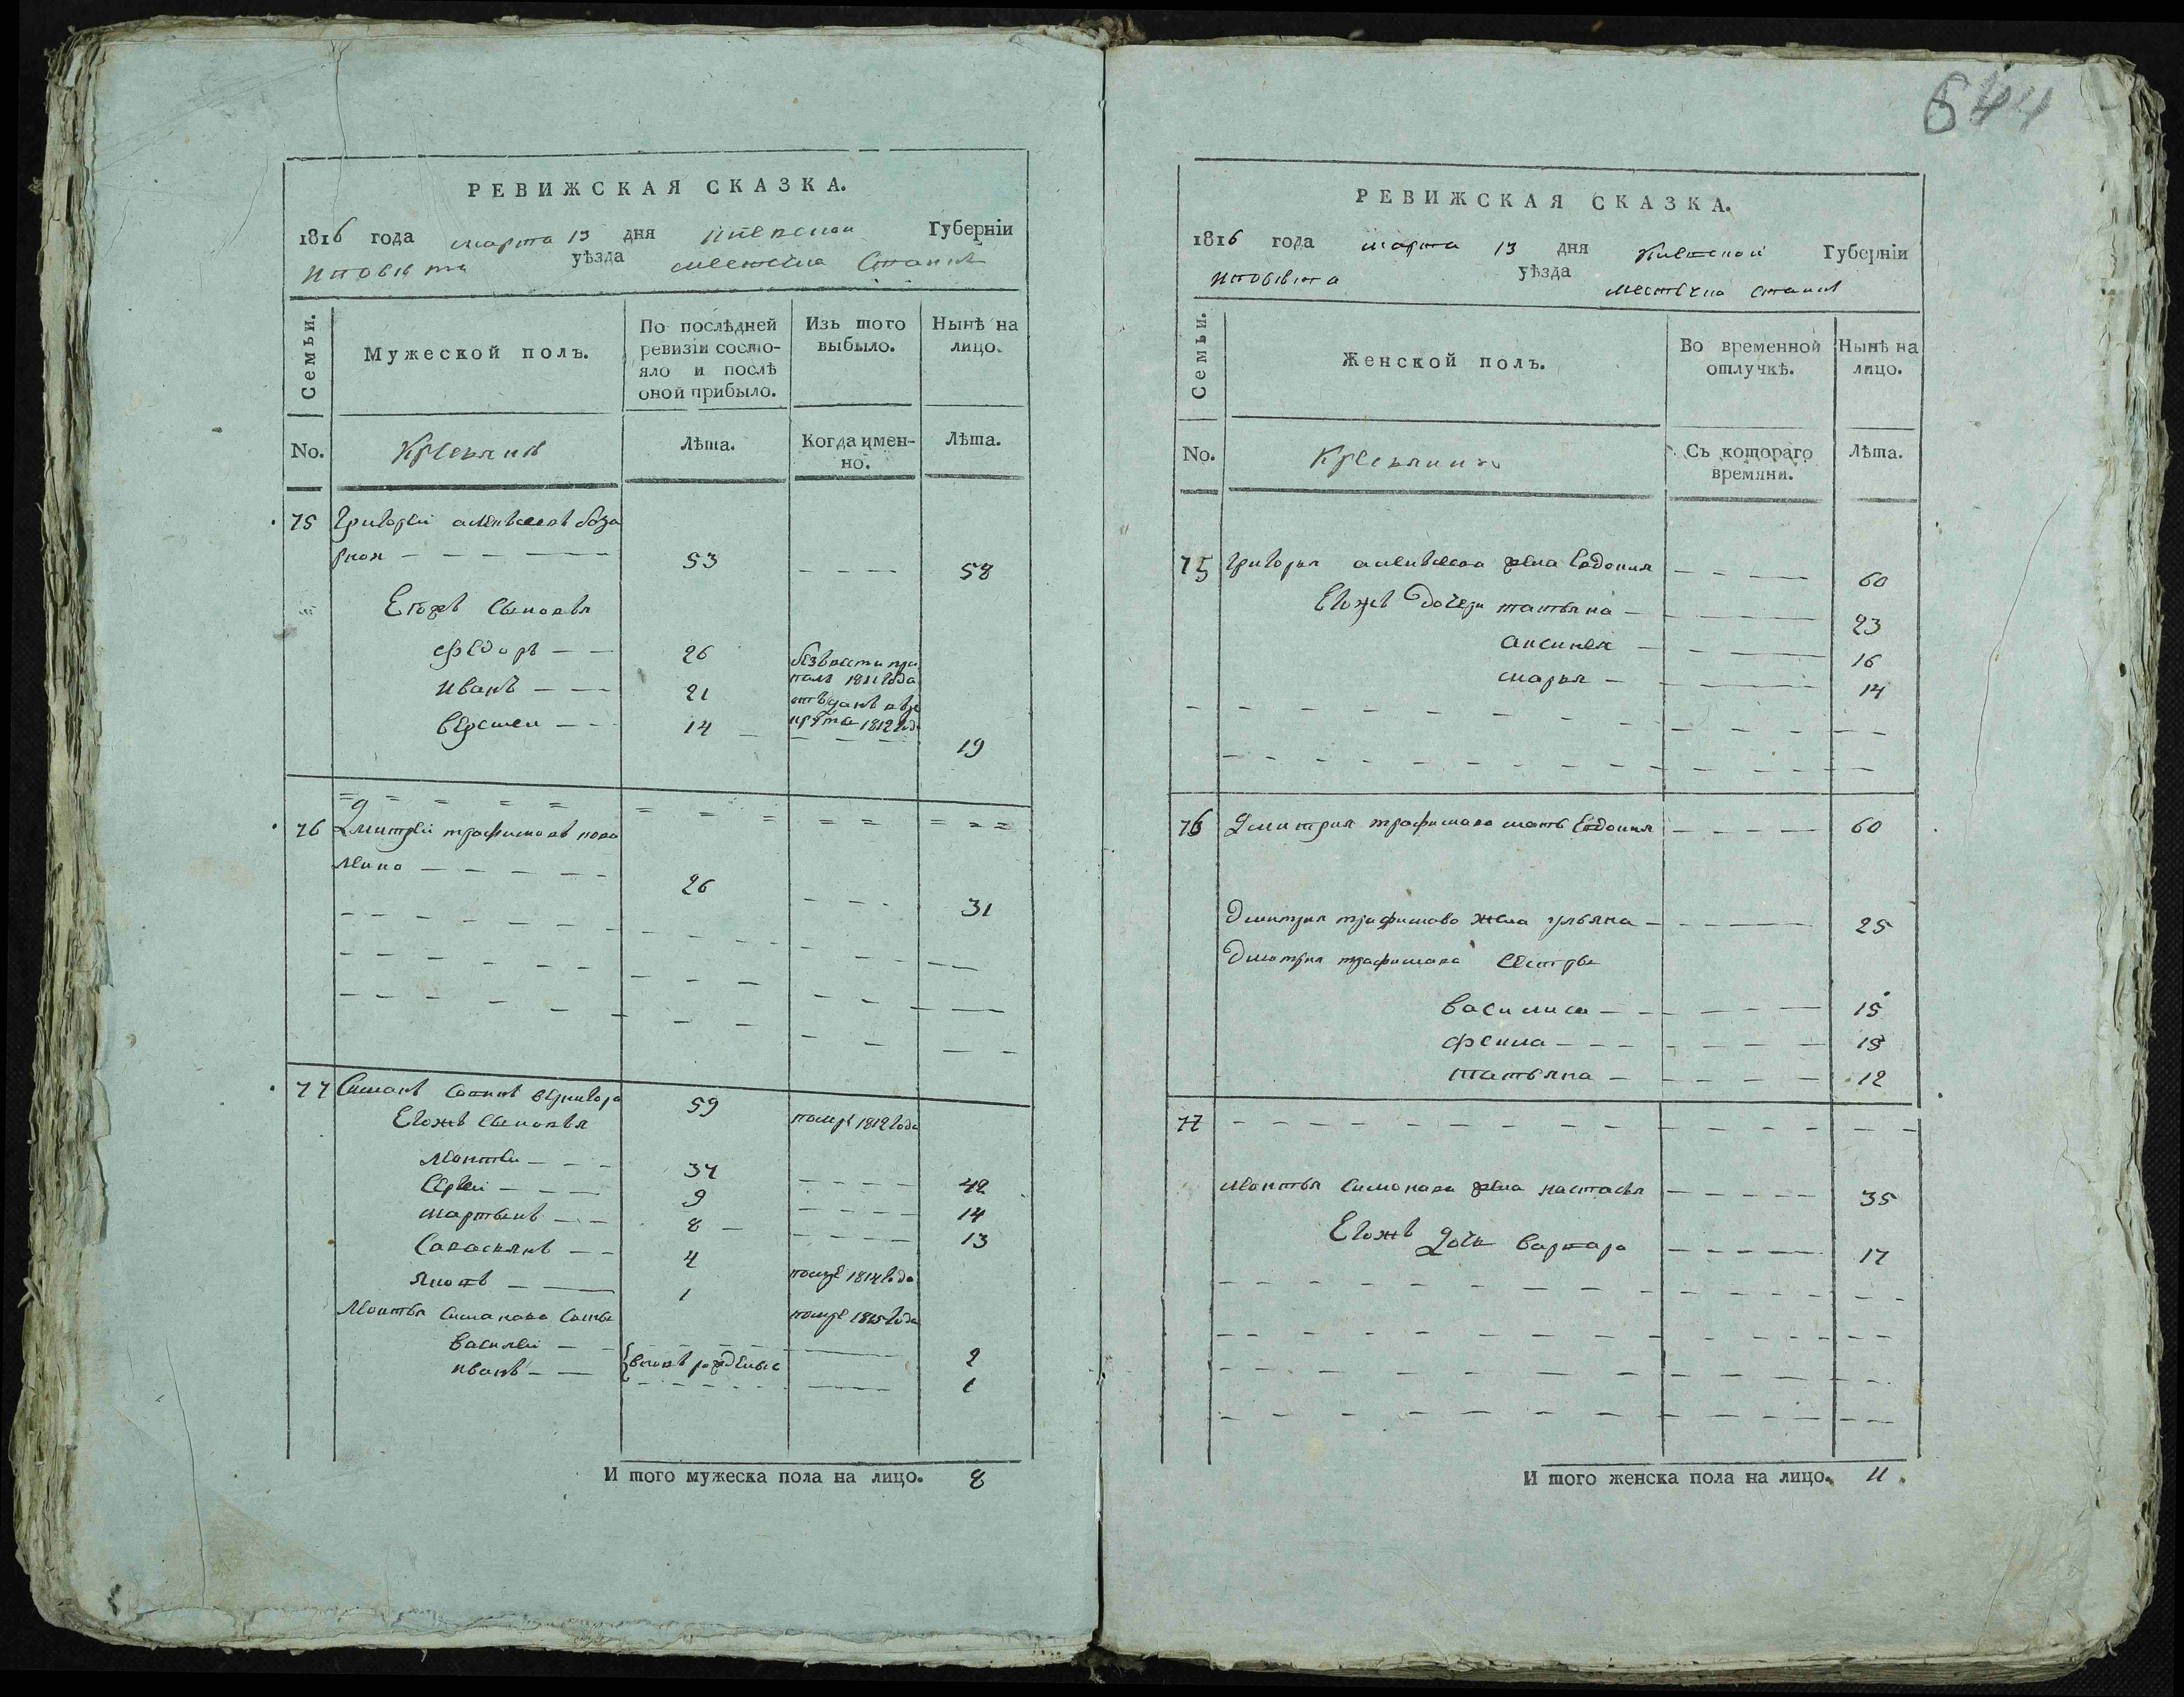 РЕВИЖСКАЯ СКАЗКА.
1816 года марта 13 дня Киевской Губерніи
уѣзда местечка Ставищ
Семьи.
Мужеской полъ.
По послѣдней ревизіи состояло и послѣ оной прибыло.
Изъ того выбыло.
Нынѣ на лицо.
No.
Лѣта.
Когда именно.
Лѣта.
75 Григорей алексеевъ
53 58
Егожъ сыновья
Федоръ 26 безвести пропалъ 1811 года
Иванъ 21 отъданъ в рекруты 1812 года
14 19
76 Дмитрей трафимовъ
26 31
77 59 помре 1812 года
Егожъ сыновья
Леонтей 34 42
Сергей 9 14
мартынъ 8 13
4 помре 1814 года
Яковъ 1 помре 1815 года
Леонтья Симанова сыны
василей вновь рожденые 2
иванъ 1
И того мужеска пола на лицо. 8
544
РЕВИЖСКАЯ СКАЗКА.
1816 года марта 13 дня Киевской Губерніи
уѣзда местечка Ставищ
Семьи.
Женской полъ.
Во временной отлучкѣ.
Нынѣ на лицо.
No.
Съ котораго времяни.
Лѣта.
75 Григорья алексеева жена Евдокия 60
Егожъ дочери татьяна 23
аксинья 16
марья 14
76 Дмитрия трафимова мать Евдокия 60
Дмитрия трафимова жена ульяна 25
Дмитрия трафимова сестры
василиса 15
фекла 15
татьяна 12
77
Леонтья Симонова жена настасья 35
Егожъ дочь варвара 17
И того женска пола на лицо. 11.